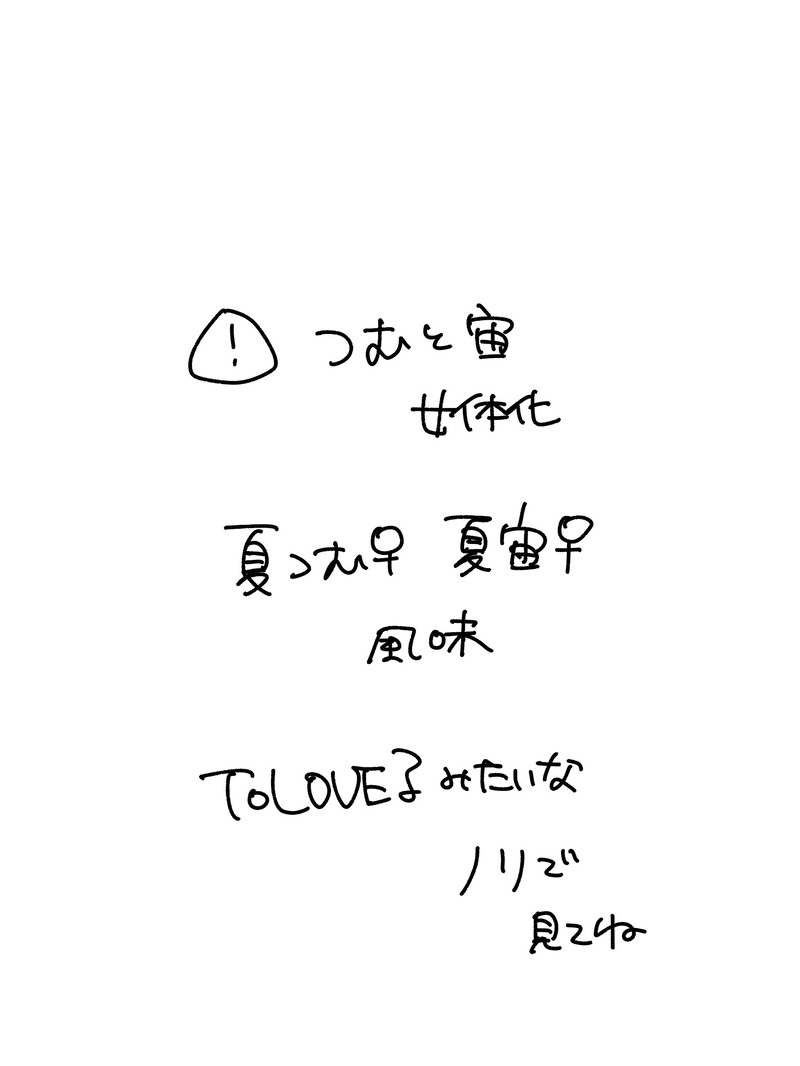 ! つむと宙
女体化
夏つむ♀ 夏宙♀
風味
ToLOVEるみたいな
ノリで
見てね